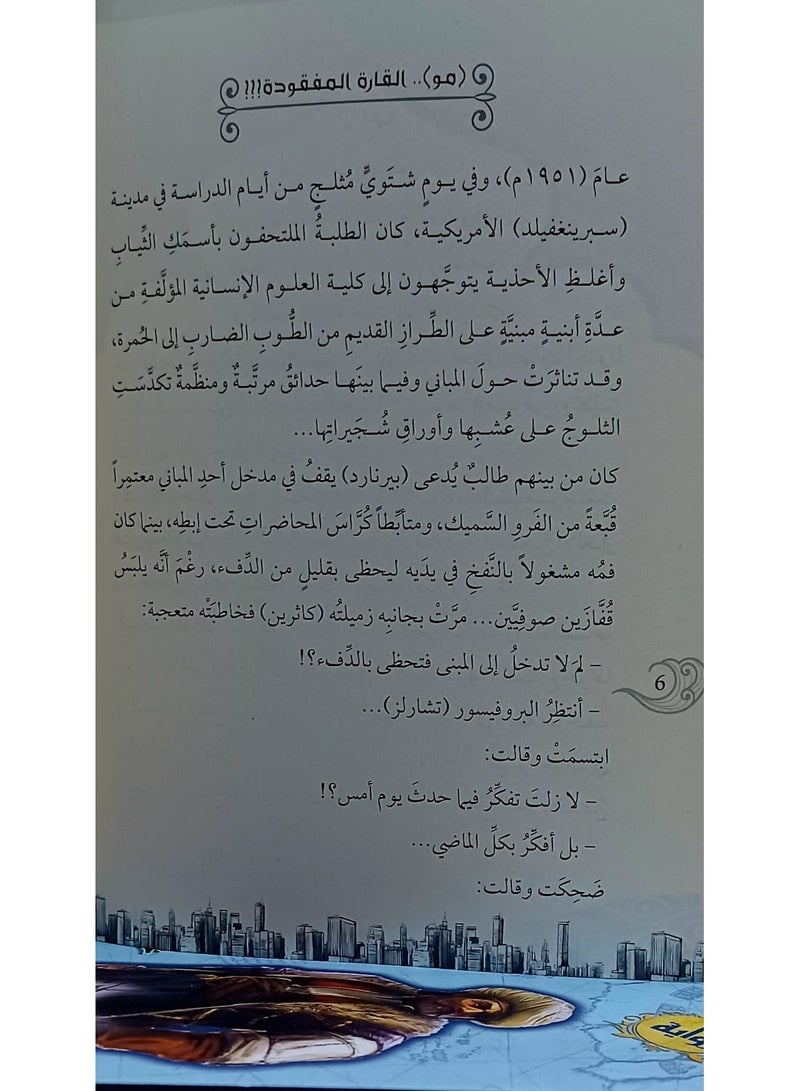 (مو).. القارة المفقودة!!!
عـامَ (١٩٥١م)، وفي يـومٍ شـتَويٍّ مُثلـجٍ مـن أيـام الدراسـة في مدينـة
(سـبرينغفيلد) الأمريكيـة، كان الطلبـةُ الملتحفـون بأسـمَكِ الثِّيـابِ
وأغلـظِ الأحذيـة يتوجَّهـون إلى كليـة العلـوم الإنسـانية المؤلَّفـةِ مـن
عـدَّةِ أبنيـةٍ مبنيَّةٍ عـلى الطِّـرازِ القديـمِ مـن الطُّـوبِ الضـاربِ إلى الحُمرة،
وقـد تناثـرَتْ حـولَ المباني وفيـما بينَهـا حدائقُ مرتَّبـةٌ ومنظَّمةٌ تكدَّسَـتِ
الثلـوجُ عـلى عُشـبِها وأوراقِ شُـجَيراتِها...
كان من بينهم طالبٌ يُدعى (بيرنارد) يقفُ في مدخل أحدِ المباني معتمِراً
قُبَّعةً من الفَروِ السَّميك، ومتأبِّطاً كُرَّاسَ المحاضراتِ تحت إبطِه، بينما كان
فمُه مشغولاً بالنَّفخِ في يدَيه ليحظى بقليلٍ من الدِّفء، رغْمَ أنَّه يلبَسُ
قُفَّازَين صوفيَّين... مرَّتْ بجانبِه زميلتُه (كاثرين) فخاطبَتْه متعجبة:
– لمَ لا تدخلُ إلى المبنى فتحظى بالدِّفء؟!
6
– أنتظِرُ البروفيسور (تشارلز)...
ابتسمَتْ وقالت:
– لا زلتَ تفكِّرُ فيما حدثَ يوم أمس؟!
– بل أفكِّرُ بكلِّ الماضي...
ضَحِكَت وقالت: